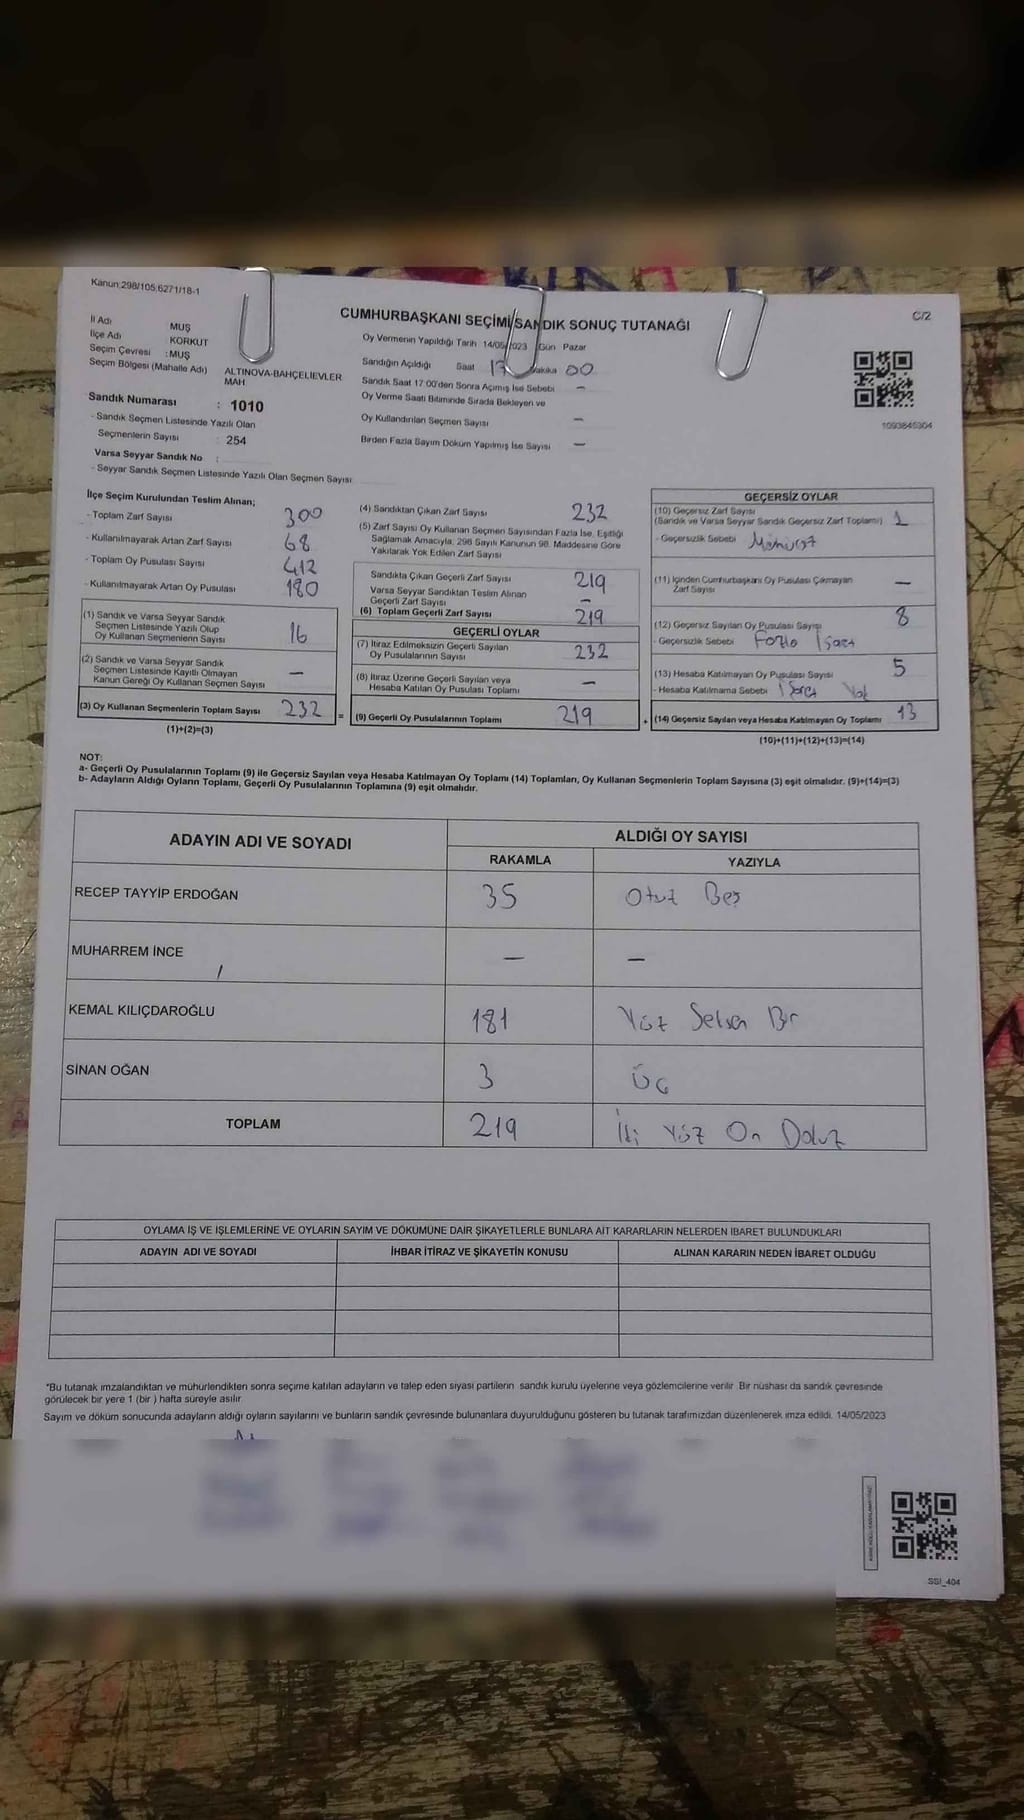 Kanun:298/105;6271/18-1
C/2
CUMHURBAŞKANI SEÇİMİ SANDIK SONUÇ TUTANAĞI
İl Adı MUŞ
İlçe Adı KORKUT
Seçim Çevresi :MUŞ
Seçim Bölgesi (Mahalle Adı) ALTINOVA-BAHÇELİEVLER
MAH
Sandık Numarası : 1010
- Sandık Seçmen Listesinde Yazılı Olan
Seçmenlerin Sayısı : 254
Varsa Seyyar Sandık No :
- Seyyar Sandık Seçmen Listesinde Yazılı Olan Seçmen Sayısı
Oy Vermenin Yapıldığı Tarih 14/05/2023 Gün Pazar
Sandığın Açıldığı Saat 17 Dakika 00
Sandık Saat 17:00'den Sonra Açımış İse Sebebi -
Oy Verme Saati Bitiminde Sırada Bekleyen ve
Oy Kullandırılan Seçmen Sayısı -
Birden Fazla Sayım Döküm Yapılmış İse Sayısı -
1093845304
İlçe Seçim Kurulundan Teslim Alınan;
- Toplam Zarf Sayısı 300
- Kullanılmayarak Artan Zarf Sayısı 68
- Toplam Oy Pusulası Sayısı 412
- Kullanılmayarak Artan Oy Pusulası 180
(1) Sandık ve Varsa Seyyar Sandık
Seçmen Listesinde Yazılı Olup
Oy Kullanan Seçmenlerin Sayısı 16
(2) Sandık ve Varsa Seyyar Sandık
Seçmen Listesinde Kayıtlı Olmayan
Kanun Gereği Oy Kullanan Seçmen Sayısı -
(3) Oy Kullanan Seçmenlerin Toplam Sayısı 232
(1)+(2)=(3)
=
(4) Sandıktan Çıkan Zarf Sayısı 232
(5) Zarf Sayısı Oy Kullanan Seçmen Sayısından Fazla İse, Eşitliği
Sağlamak Amacıyla, 298 Sayılı Kanunun 98. Maddesine Göre
Yakılarak Yok Edilen Zarf Sayısı
Sandıkta Çıkan Geçerli Zarf Sayısı 219
Varsa Seyyar Sandıktan Teslim Alınan
Geçerli Zarf Sayısı -
(6) Toplam Geçerli Zarf Sayısı 219
GEÇERLİ OYLAR
(7) İtiraz Edilmeksizin Geçerli Sayılan
Oy Pusulalarının Sayısı 232
(8) İtiraz Üzerine Geçerli Sayılan veya
Hesaba Katılan Oy Pusulası Toplamı -
(9) Geçerli Oy Pusulalarının Toplamı 219
+
GEÇERSİZ OYLAR
(10) Geçersiz Zarf Sayısı
(Sandık ve Varsa Seyyar Sandık Geçersiz Zarf Toplamı) 1
- Geçersizlik Sebebi
(11) İçinden Cumhurbaşkanı Oy Pusulası Çıkmayan
Zarf Sayısı -
(12) Geçersiz Sayılan Oy Pusulası Sayısı 8
- Geçersizlik Sebebi Fazla İşaret
(13) Hesaba Katılmayan Oy Pusulası Sayısı 5
- Hesaba Katılmama Sebebi İşaret Yok
(14) Geçersiz Sayılan veya Hesaba Katılmayan Oy Toplamı 13
(10)+(11)+(12)+(13)=(14)
NOT:
a- Geçerli Oy Pusulalarının Toplamı (9) ile Geçersiz Sayılan veya Hesaba Katılmayan Oy Toplamı (14) Toplamları, Oy Kullanan Seçmenlerin Toplam Sayısına (3) eşit olmalıdır. (9)+(14)=(3)
b- Adayların Aldığı Oyların Toplamı, Geçerli Oy Pusulalarının Toplamına (9) eşit olmalıdır.
ADAYIN ADI VE SOYADI ALDIĞI OY SAYISI
RAKAMLA YAZIYLA
RECEP TAYYİP ERDOĞAN 35 Otuz Beş
MUHARREM İNCE - -
KEMAL KILIÇDAROĞLU 181 Yüz Seksen Bir
SİNAN OĞAN 3 Üç
TOPLAM 219 İki Yüz On Dokuz
OYLAMA İŞ VE İŞLEMLERİNE VE OYLARIN SAYIM VE DÖKÜMÜNE DAİR ŞİKAYETLERLE BUNLARA AİT KARARLARIN NELERDEN İBARET BULUNDUKLARI
ADAYIN ADI VE SOYADI İHBAR İTİRAZ VE ŞİKAYETİN KONUSU ALINAN KARARIN NEDEN İBARET OLDUĞU
*Bu tutanak imzalandıktan ve mühürlendikten sonra seçime katılan adayların ve talep eden siyasi partilerin sandık kurulu üyelerine veya gözlemcilerine verilir. Bir nüshası da sandık çevresinde
görülecek bir yere 1 (bir ) hafta süreyle asılır.
Sayım ve döküm sonucunda adayların aldığı oyların sayılarını ve bunların sandık çevresinde bulunanlara duyurulduğunu gösteren bu tutanak tarafımızdan düzenlenerek imza edildi. 14/05/2023
SSI_404